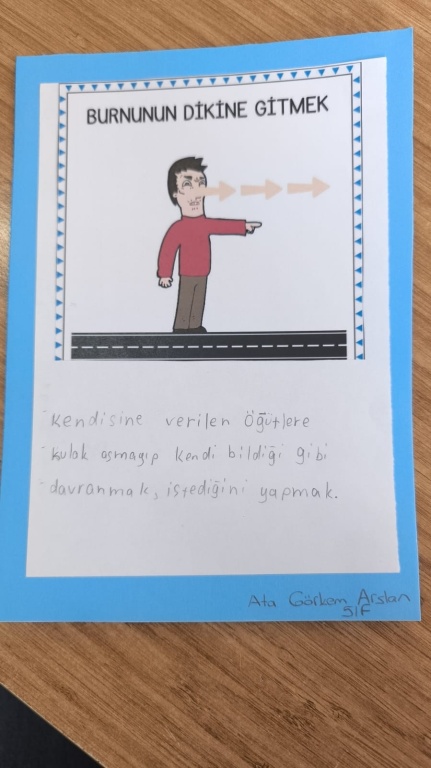 BURNUNUN DİKİNE GİTMEK
Kendisine verilen öğütlere
kulak asmayıp kendi bildiği gibi
davranmak, istediğini yapmak.
Ata Görkem Arslan
5/F